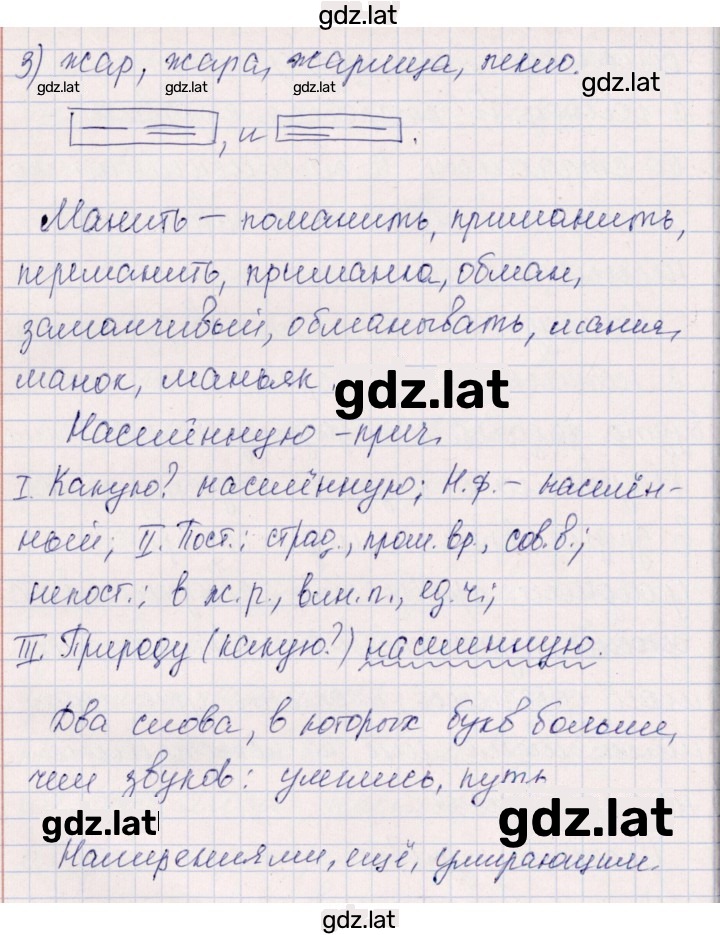 gdz.lat
3) жар, жара, жарища, пекло.
gdz.lat gdz.lat gdz.lat gdz.lat
, и .
Манить – поманить, приманить,
переманить, приманка, обман,
заманчивый, обманывать, мания,
манок, маньяк.
gdz.lat
Населённую – прич.
I. Какую? населённую; Н.ф. – населён-
ный; II. Пост.: страд., прош. вр., сов. в.;
непост.: в ж. р., вин. п., ед. ч.;
III. Природу (какую?) населенную.
Два слова, в которых букв больше,
чем звуков: улеглись, путь
gdz.lat gdz.lat
Намерениями, ещё, умирающим.
gdz.lat